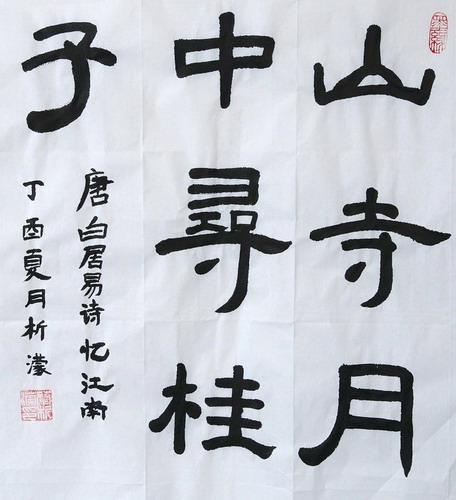 山寺月
中尋桂
子
唐白居易诗忆江南
丁酉夏月析濛